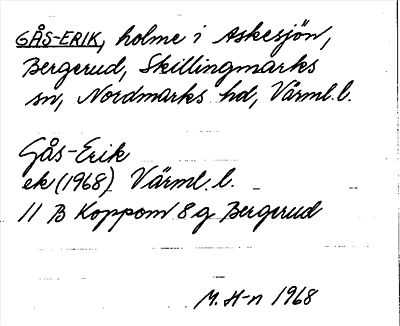 GÅS-ERIK, holme i Askesjön,
Bergerud, Skillingmarks
sn, Nordmarks hd, Värml. l.
Gås-Erik
ek (1968) Värml. l.
11 B Koppom 8 g Bergerud
M. H-n 1968